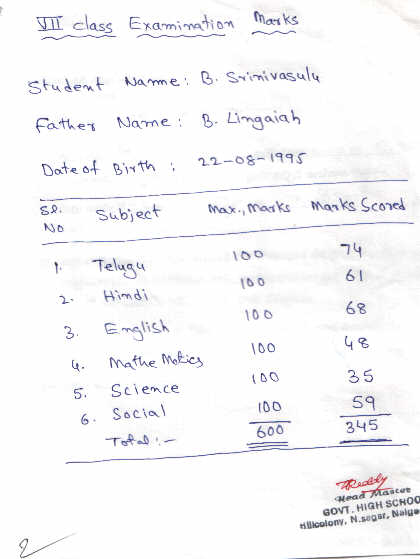 VII class Examination Marks
Student Name: B. Srinivasulu
Father Name: B. Lingaiah
Date of Birth: 22-08-1995
Sl. No Subject Max., Marks Marks Scored
1. Telugu 100 74
2. Hindi 100 61
3. English 100 68
4. Mathe Matics 100 48
5. Science 100 35
6. Social 100 59
Total:- 600 345
Reddy
Head Master
GOVT. HIGH SCHOO
Hillcolony, N.sagar, Nalgo
2